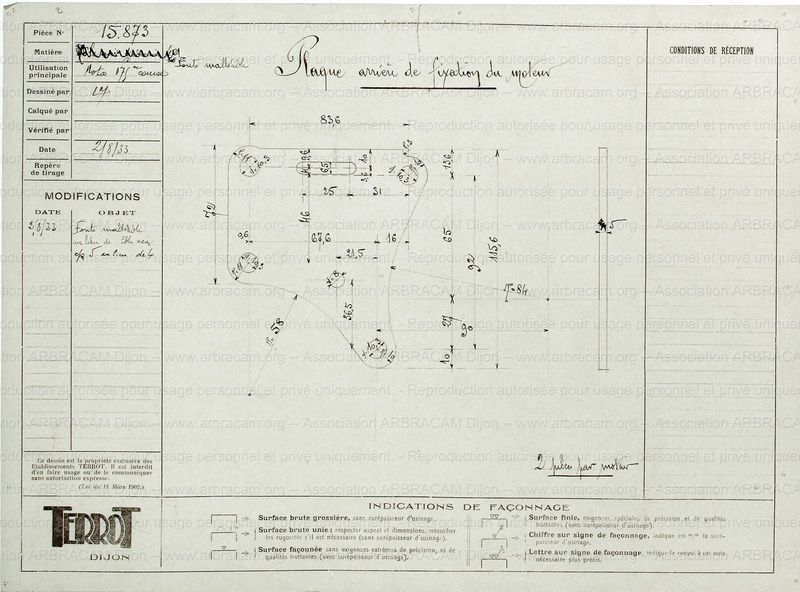 Pièce N° 15.873
Matière
Fonte malléable
Utilisation
principale
Moto 175 course
Dessiné par
Calqué par
Vérifié par
Date 2/8/33
Repère
de tirage
Plaque arrière de fixation du moteur
CONDITIONS DE RÉCEPTION
MODIFICATIONS
DATE OBJET
2/8/33 Fonte malléable
au lieu de tôle acier
5 au lieu de 4
83,6
9,6
65
10
3,6
13,6
25
31
72
46
9,6
67,6
16
21,5
65
92
115,6
5
R=84
36,5
R=58
27
10
2 pièces par moteur
Ce dessin est la propriété exclusive des
Etablissements TERROT. Il est interdit
d'en faire usage ou de le communiquer
sans autorisation expresse.
(Loi du 11 Mars 1902.)
TERROT
DIJON
INDICATIONS DE FAÇONNAGE
Surface brute grossière, sans surépaisseur d'usinage.
Surface brute unie; respecter aspect et dimensions, retoucher
les rugosités s'il est nécessaire (sans surépaisseur d'usinage).
Surface façonnée sans exigences extrêmes de précision, ni de
qualités frottantes (avec surépaisseur d'usinage).
Surface finie, exigences spéciales de précision et de qualités
frottantes (avec surépaisseur d'usinage).
Chiffre sur signe de façonnage, indique en m/m la surépaisseur d'usinage.
Lettre sur signe de façonnage, indique le renvoi à une note
nécessaire plus précis.
www.arbracam.org – Association ARBRACAM Dijon – Reproduction autorisée pour usage personnel et privé uniquement.